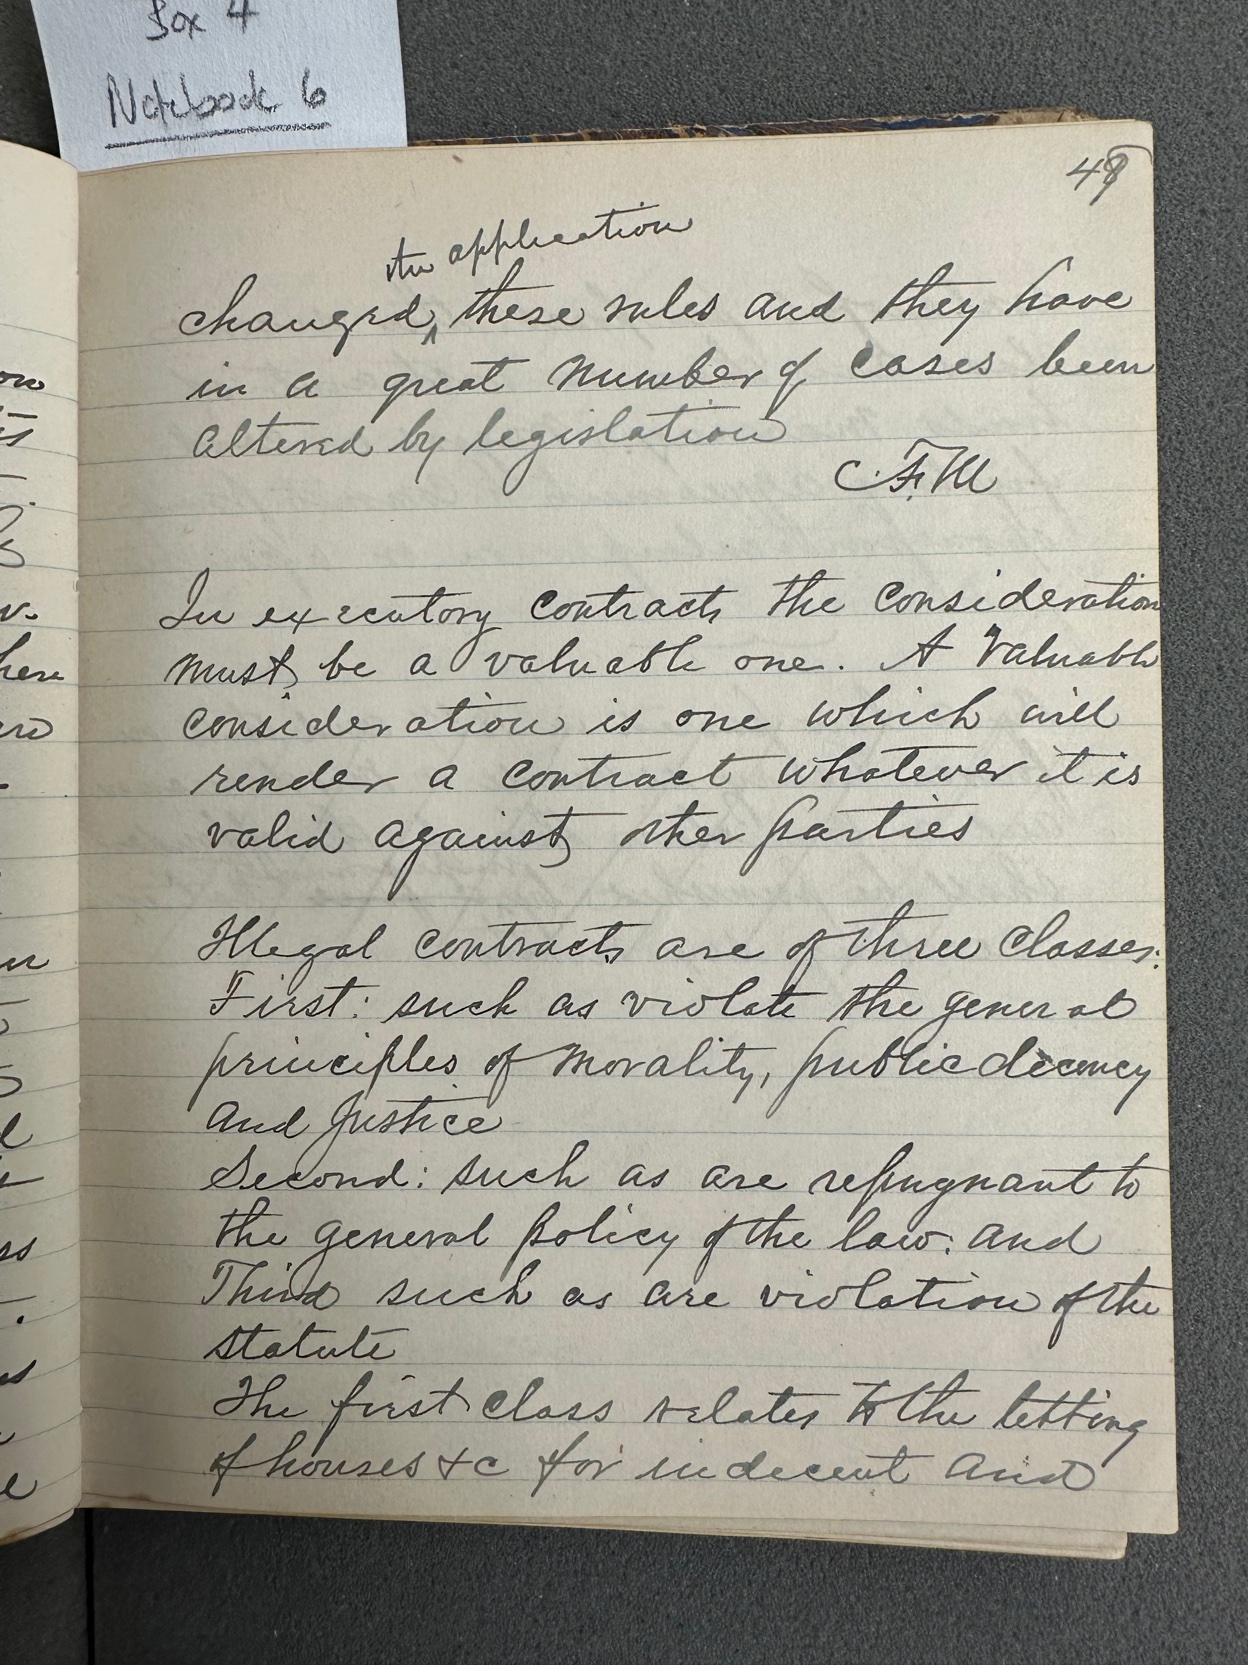 Box 4
Notebook 6
48
the application
changed, these rules and they have
in a great number of cases been
altered by legislation
C.F.M
In executory contracts the consideration
must be a valuable one. A valuable
consideration is one which will
render a contract whatever it is
valid against other parties
Illegal contracts are of three classes.
First: such as violate the general
principles of morality, public decency
and justice
Second: such as are repugnant to
the general policy of the law: and
Third such as are violation of the
statute
The first class relates to the letting
of houses &c for indecent and